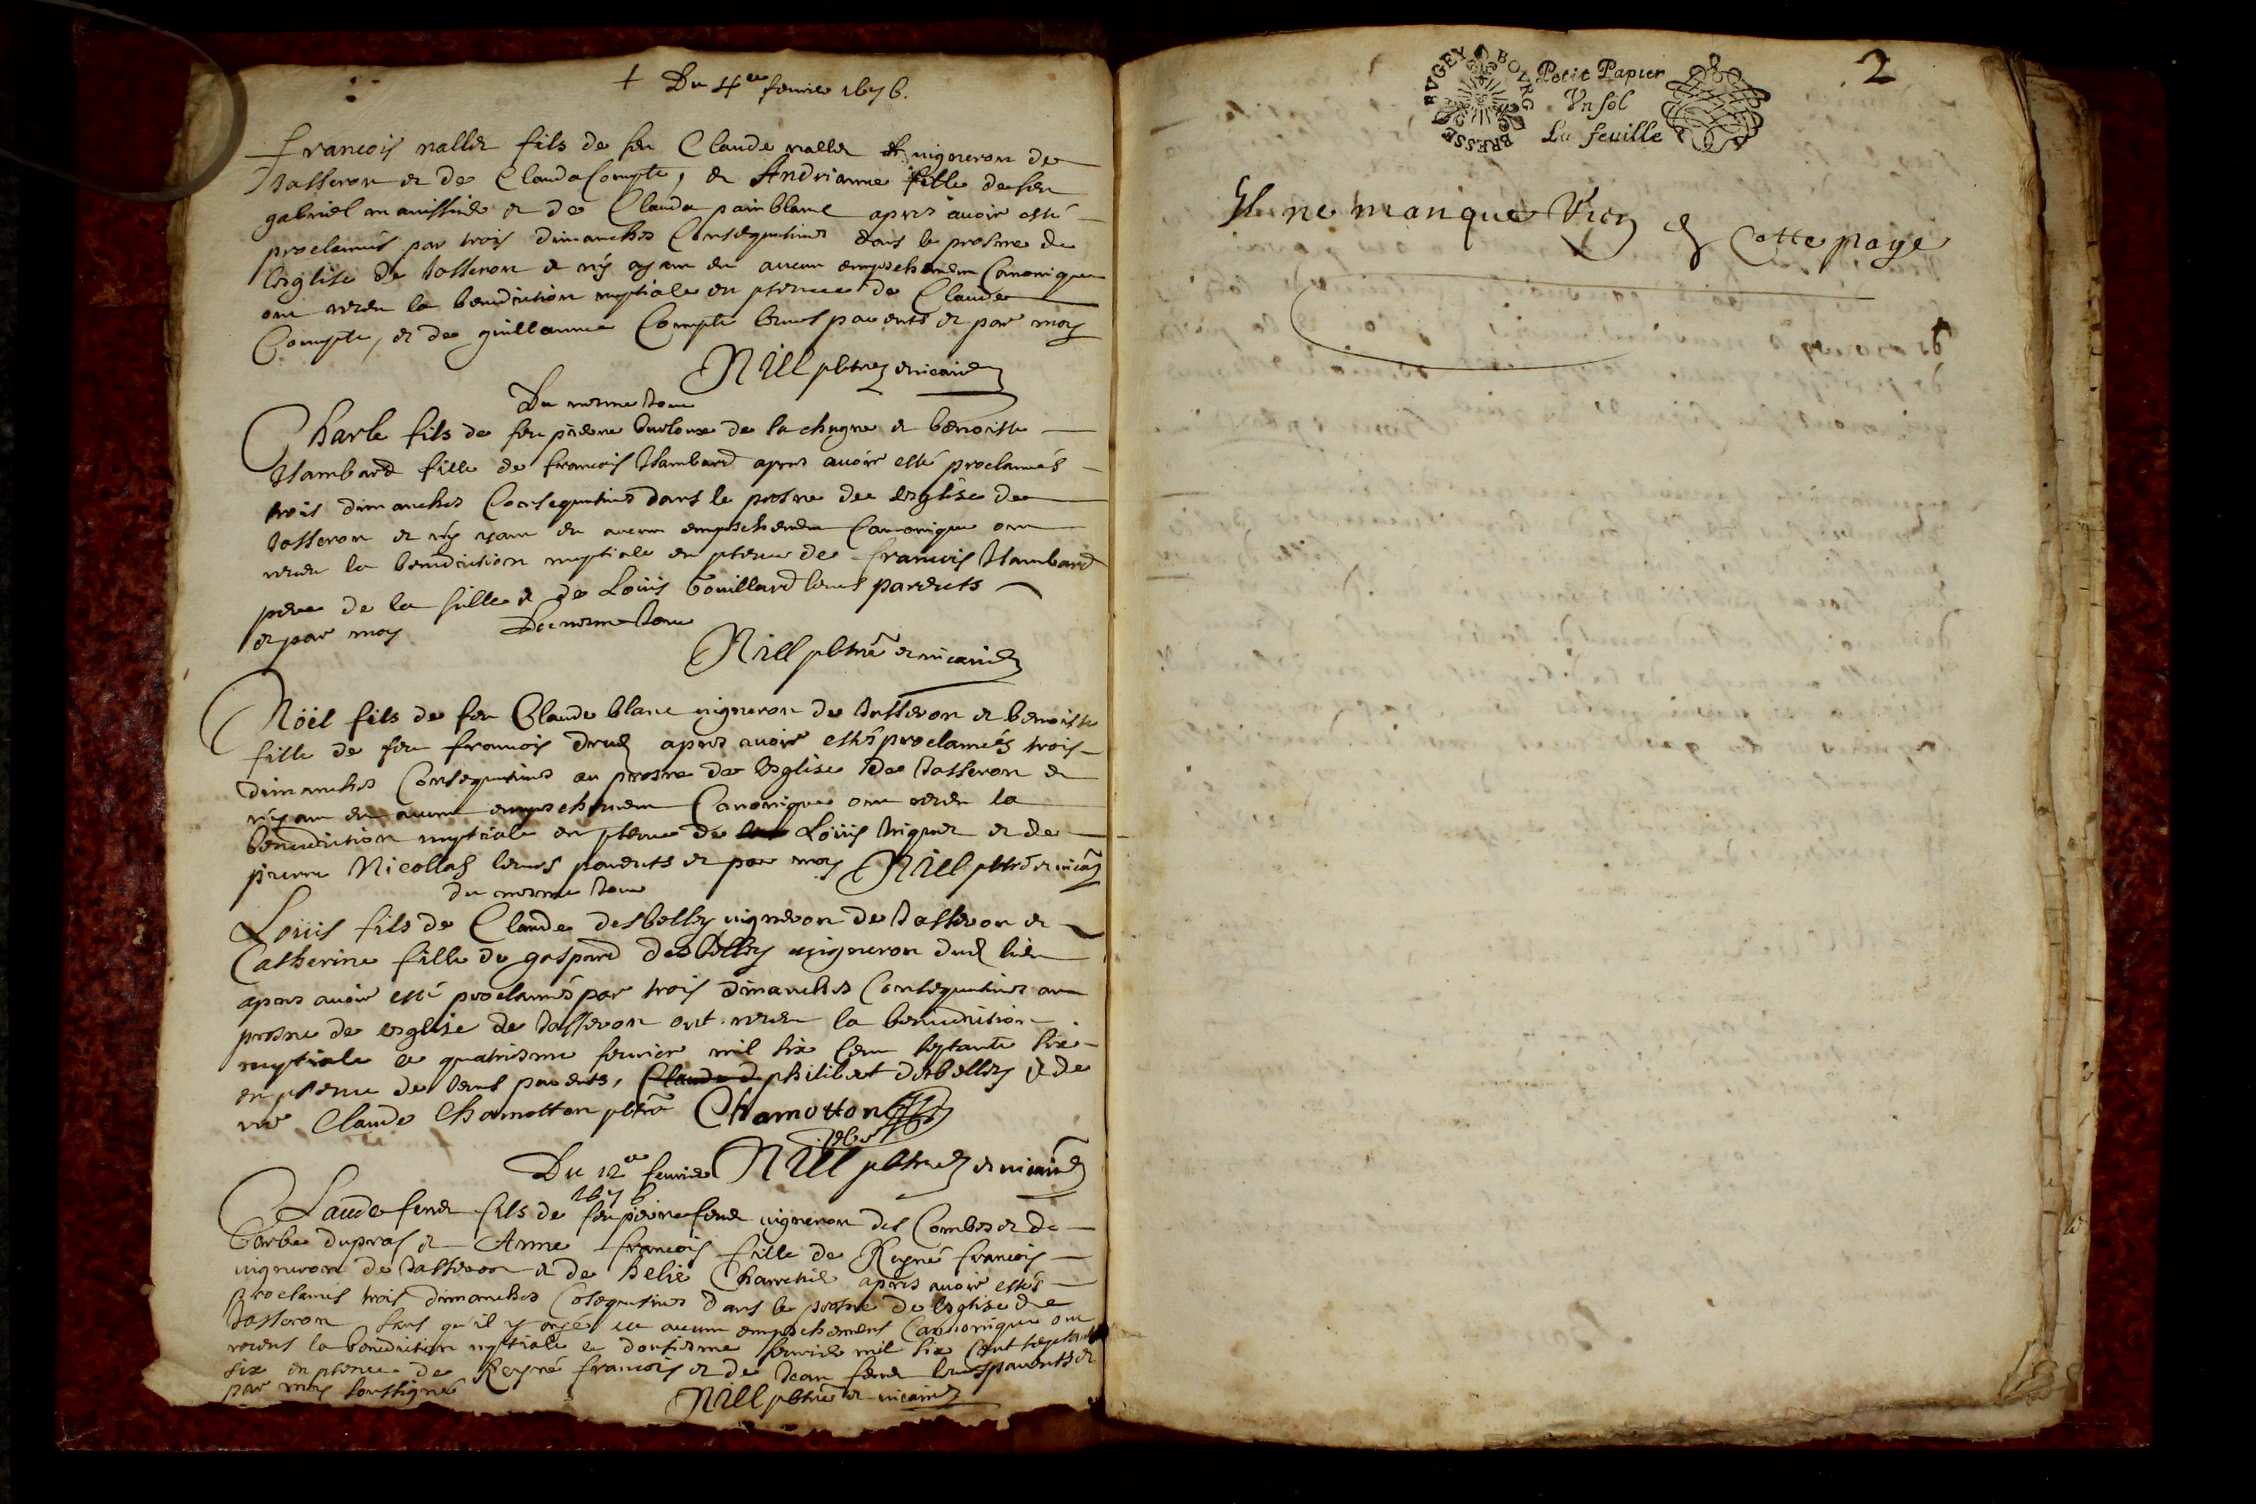 + Du 4e feurier 1676.
francois nallet fils de feu Claude nallet vigneron de
Jasseron et de Clauda Compte, et Andrianne fille de feu
gabriel manissier et de Clauda painblanc apres auoir esté
proclamés par trois dimanches Consequtiues dans le prosne de
leglise de Jasseron et ny ayant eu aucun empeschement Canonique
ont receu la benediction nuptiale en presence de Claude
Compte, et de guillaume Compte leurs parents et par moy
Nill pbtre et vicaire
Du mesme Jour
Charle fils de feu pierre de la chagne et benoiste
Hambard fille de francois Hambard apres auoir esté proclamés
trois dimanches Consequtiues dans le prosne de leglise de
Jasseron et ny ayant eu aucun empeschement Canonique ont
receu la benediction nuptiale en presence de francois Hambard
pere de la fille et de Louis bouillard leurs parents
et par moy Du mesme Jour
Nill pbtre et vicaire
Nöel fils de feu Claude blanc vigneron de Jasseron et benoiste
fille de feu francois apres auoir estés proclamés trois
dimanches Consequtiues au prosne de leglise de Jasseron et
ny ayant eu aucun empeschement Canonique ont receu la
benediction nuptiale en presence de Loüis et de
pierre Nicollas leurs parents et par moy Nill pbtre et vicaire
du mesme Jour
Loüis fils de Claude desbelley vigneron de Jasseron et
Catherine fille de gaspard desbelley vigneron dud lieu
apres auoir esté proclamés par trois dimanches Consequtiues au
prosne de leglise de Jasseron ont receu la benediction
nuptiale le quatriesme feurier mil six Cent septante six
en presence de leurs parents, philibert desbelley et de
Claude Chamotton pbtre Chamotton
pbtre
Du 12e feurier Nill pbtre et vicaire
1676
Claude feret fils de feu pierre feret vigneron des Combes et de
barbe dupras et Anne francois fille de Reyné francois
vigneron de Jasseron et de helie apres auoir estés
proclamés trois dimanches Cosequtiues dans le prosne de leglise de
Jasseron sans qu'il y aye eu aucun empeschement Canonique ont
receus la benediction nuptiale le dousiesme feurier mil six Cent septante
six en presence de Reyné francois et de Jean feret leurs parents et
par moy soussigné
Nill pbtre et vicaire
BVGEY BOVRG BRESSE
Petit Papier
Vn sol
La feuille
2
Il ne manque Rien a Cette page